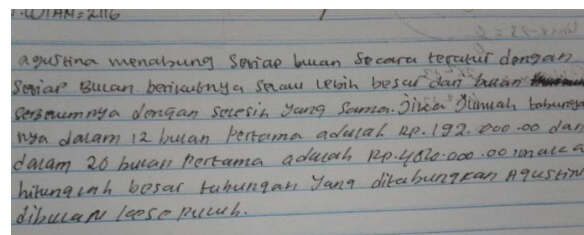 agustina menabung Setiap bulan Secara teratur dengan
Setiap Bulan berikutnya Selalu lebih besar dari bulan
Sebelumnya dengan selesih Yang Sama. Jika Jumlah tabung
nya dalam 12 bulan Pertama adalah Rp.192.000.00 dan
dalam 20 bulan Pertama adalah Rp.480.000.00 maka
hitunglah besar tabungan Yang ditabungkan Agustin
dibulan kesepuluh.